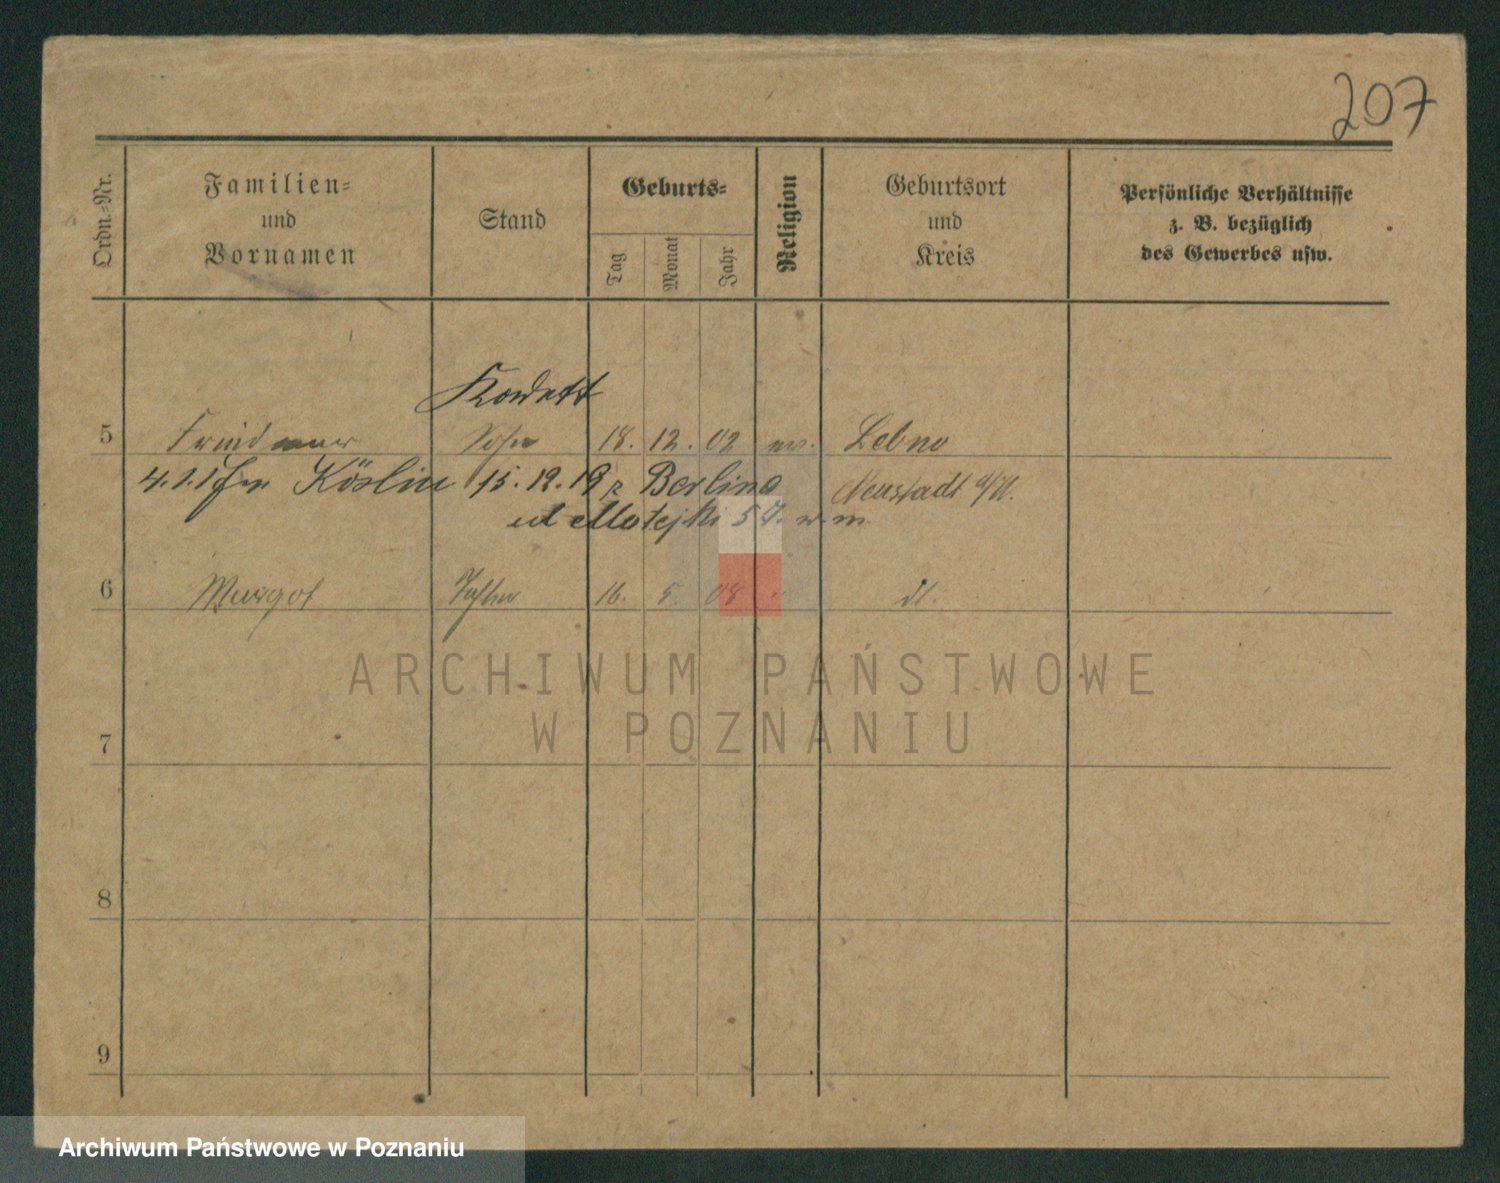 207
Ordn.-Nr.
Familien-
und
Vornamen
Stand
Geburts-
Tag
Monat
Jahr
Religion
Geburtsort
und
Kreis
Persönliche Verhältnisse
z. B. bezüglich
des Gewerbes usw.
Kadett
5 Sohn 18. 12. 02 ev. Lebno
4.1. Köslin 15.12.19 z Berlina Neustadt
ul Matejki 57. w.m.
6 Margot Tochter 16. 5. 08 dt.
ARCHIWUM PAŃSTWOWE
W POZNANIU
7
8
9
Archiwum Państwowe w Poznaniu